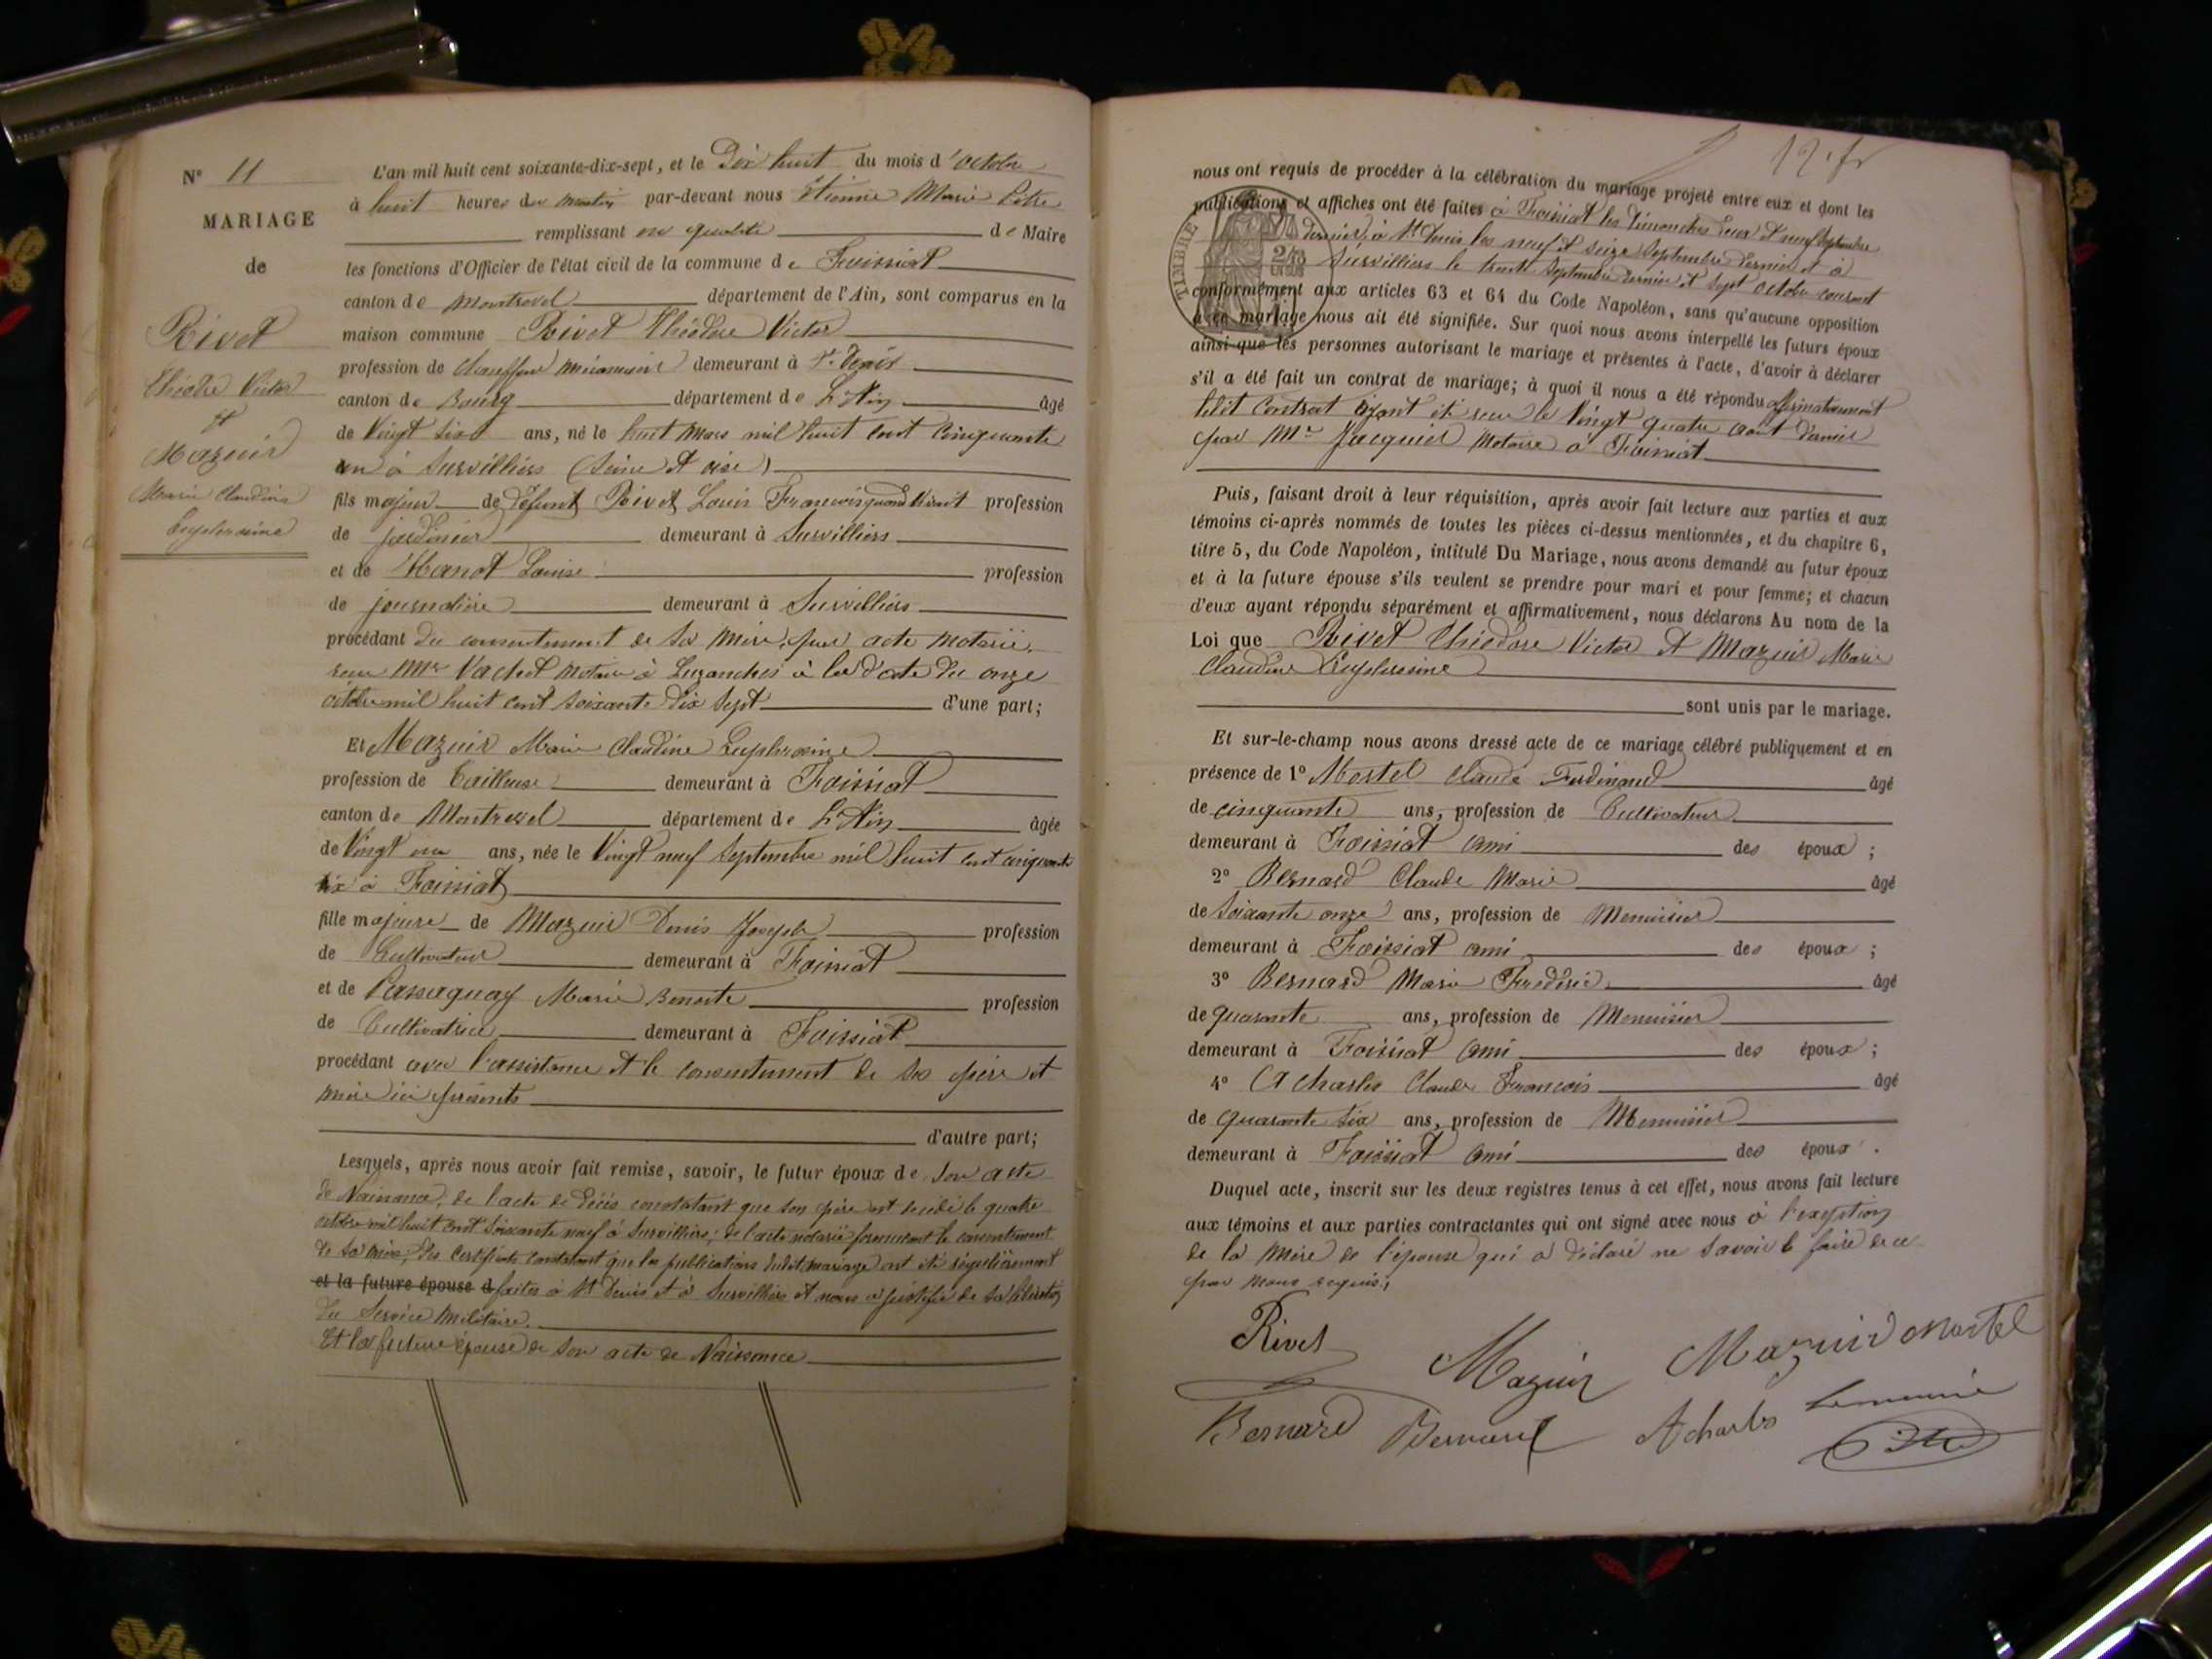 N° 11
MARIAGE
de
Rivet
Théodre Victor
et
Mazuir
Marie Claudine
Euphrosine
L'an mil huit cent soixante-dix-sept, et le Dix huit du mois d'octobre
à huit heures du matin par-devant nous Etienne Marie Pitre
remplissant en qualité de Maire
les fonctions d'Officier de l'état civil de la commune de Foissiat
canton de Montrevel département de l'Ain, sont comparus en la
maison commune Rivet Théodore Victor
profession de chauffeur mécanicien demeurant à St Denis
canton de Bourg département de L'Ain âgé
de Vingt six ans, né le huit Mars mil huit cent cinquante
un à Survilliers (Seine et oise)
fils majeur de défunt Rivet Louis Francois quand vivait profession
de jardinier demeurant à Survilliers
et de Hanot Louise profession
de journalière demeurant à Survilliers
procédant du consentement de sa mère, par acte notarié,
recu Mr Vachet Notaire à Luzarches à la date du onze
octobre mil huit cent soixante dix sept d'une part;
Et Mazuir Marie Claudine Euphrosine
profession de Tailleuse demeurant à Foissiat
canton de Montrevel département de L'Ain âgée
de Vingt un ans, née le Vingt neuf Septembre mil huit cent cinquante
six à Foissiat
fille majeure de Mazuir Denis Joseph profession
de Cultivateur demeurant à Foissiat
et de Passaquay Marie Benoite profession
de Cultivatrice demeurant à Foissiat
procédant avec l'assistance et le consentement de ses père et
mère ici présents
d'autre part;
Lesquels, après nous avoir fait remise, savoir, le futur époux de son acte
de Naissance; de l'acte de Décès constatant que son père est décédé le quatre
octobre mil huit cent soixante neuf à Survilliers; de l'acte notarié formulant le consentement
de sa mère; des Certificats constatant que les publications dudit mariage ont été régulièrement
et la future épouse d faites à St Denis et à Survilliers et nous a justifié de sa libération
du Service Militaire.
Et la future épouse de son acte de Naissance
nous ont requis de procéder à la célébration du mariage projeté entre eux et dont les
publications et affiches ont été faites à Foissiat les dimanches deux et neuf Septembre
dernier, à St Denis les neuf et seize Septembre dernier et à
Survilliers le trente Septembre dernier et sept octobre courant
TIMBRE
conformément aux articles 63 et 64 du Code Napoléon, sans qu'aucune opposition
à ce mariage nous ait été signifiée. Sur quoi nous avons interpellé les futurs époux
ainsi que les personnes autorisant le mariage et présentes à l'acte, d'avoir à déclarer
s'il a été fait un contrat de mariage; à quoi il nous a été répondu affirmativement
ledit Contrat ayant été recu le Vingt quatre aout dernier
par Mr Jacquier Notaire à Foissiat
Puis, faisant droit à leur réquisition, après avoir fait lecture aux parties et aux
témoins ci-après nommés de toutes les pièces ci-dessus mentionnées, et du chapitre 6,
titre 5, du Code Napoléon, intitulé Du Mariage, nous avons demandé au futur époux
et à la future épouse s'ils veulent se prendre pour mari et pour femme; et chacun
d'eux ayant répondu séparément et affirmativement, nous déclarons Au nom de la
Loi que Rivet Théodore Victor et Mazuir Marie
Claudine Euphrosine
sont unis par le mariage.
Et sur-le-champ nous avons dressé acte de ce mariage célébré publiquement et en
présence de 1° Mortel Claude Ferdinand âgé
de cinquante ans, profession de Cultivateur
demeurant à Foissiat ami des époux;
2° Bernard Claude Marie âgé
de Soixante onze ans, profession de Menuisier
demeurant à Foissiat ami des époux;
3° Bernard Marie Frédéric âgé
de quarante ans, profession de Menuisier
demeurant à Foissiat ami des époux;
4° Acharles Claude François âgé
de quarante six ans, profession de Menuisier
demeurant à Foissiat ami des époux.
Duquel acte, inscrit sur les deux registres tenus à cet effet, nous avons fait lecture
aux témoins et aux parties contractantes qui ont signé avec nous à l'exception
de la Mère de l'épouse qui a déclaré ne savoir le faire de ce
par nous requis.
Rivet Mazuir Mazuir Mortel
Bernard Bernard Acharles
Pitre